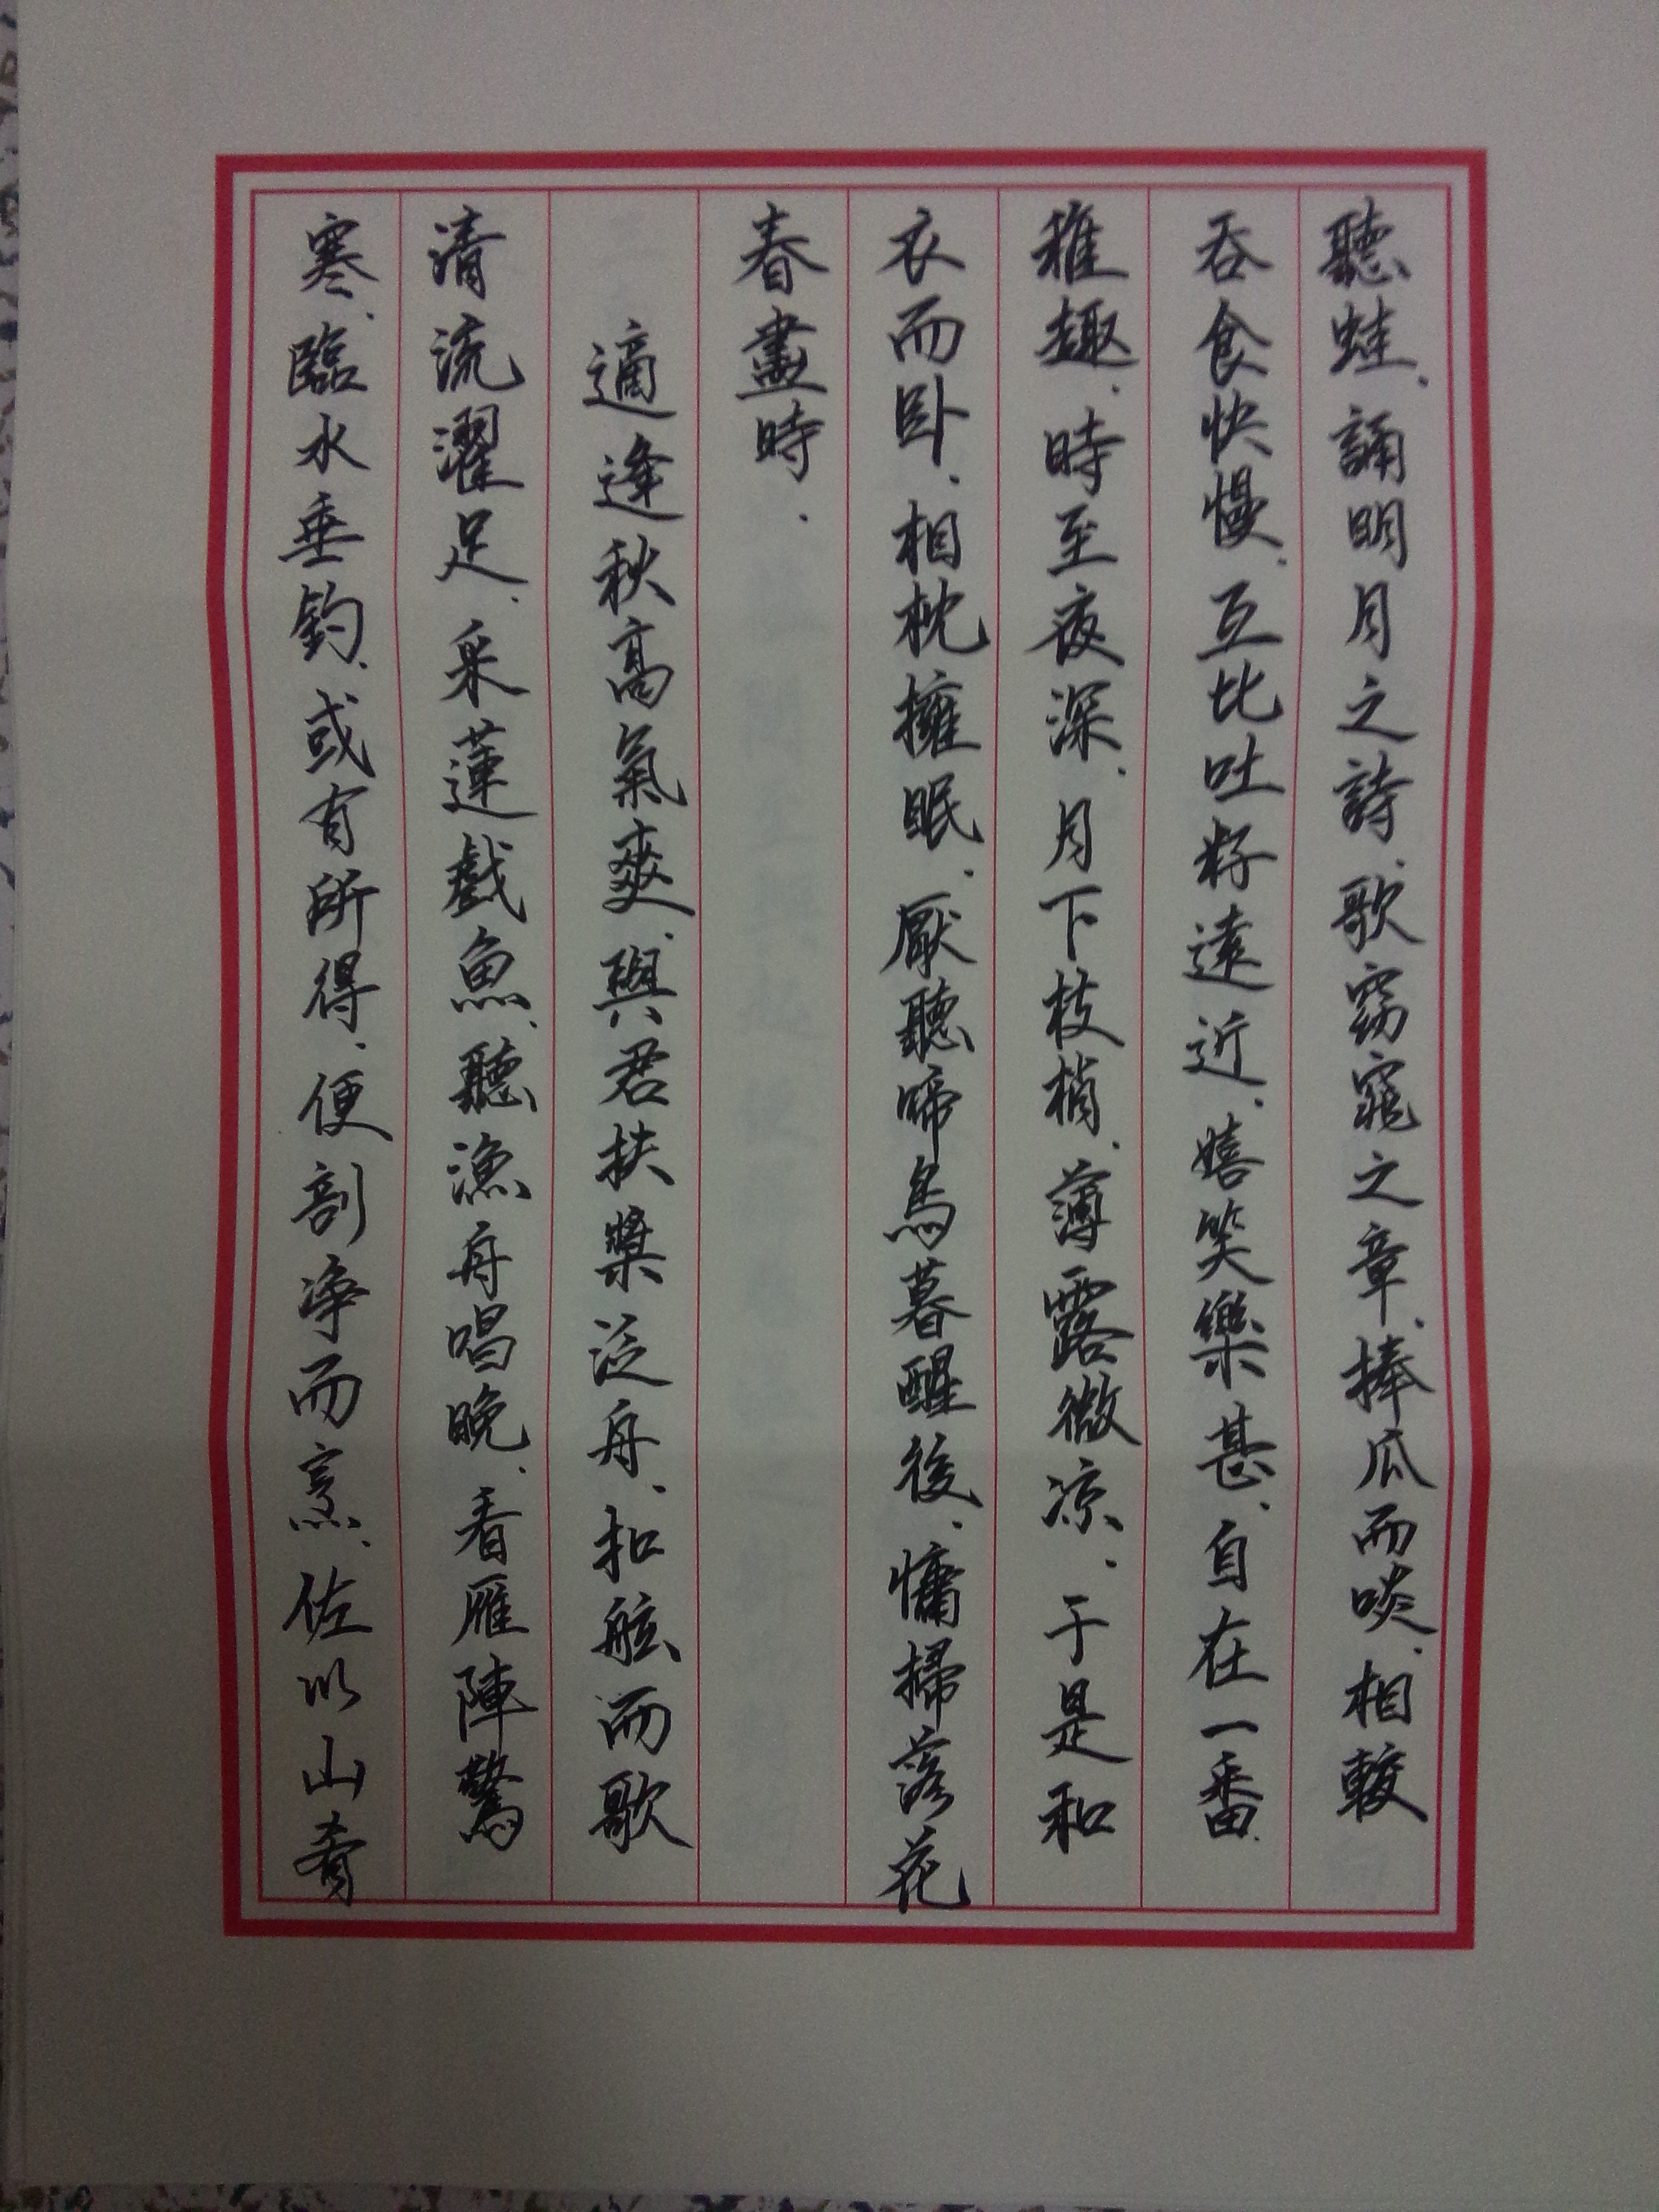 聽蛙.誦明月之詩.歌窈窕之章.捧瓜而啖.相較
吞食快慢.互比吐籽遠近.嬉笑樂甚.自在一番
稚趣.時至夜深.月下枝梢.薄露微凉.于是和
衣而卧.相枕擁眠.厭聽啼鳥暮醒後.慵掃落花
春盡時.
適逢秋高氣爽.與君扶槳泛舟.扣舷而歌
清流濯足.采蓮戲魚.聽漁舟唱晚.看雁陣驚
寒.臨水垂釣.或有所得.便剖净而烹.佐以山肴